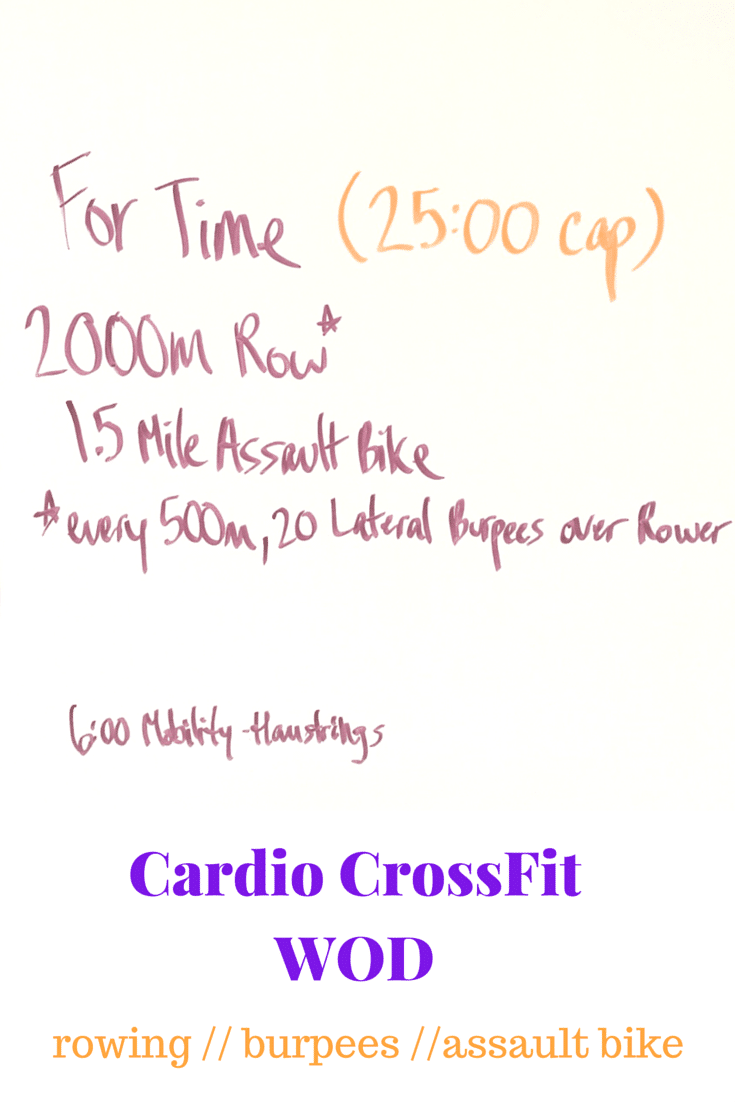 For Time (25:00 cap)
2000m Row☆
1.5 Mile Assault Bike
☆every 500m, 20 Lateral Burpees over Rower
6:00 Mobility-Hamstrings
Cardio CrossFit
WOD
rowing // burpees //assault bike